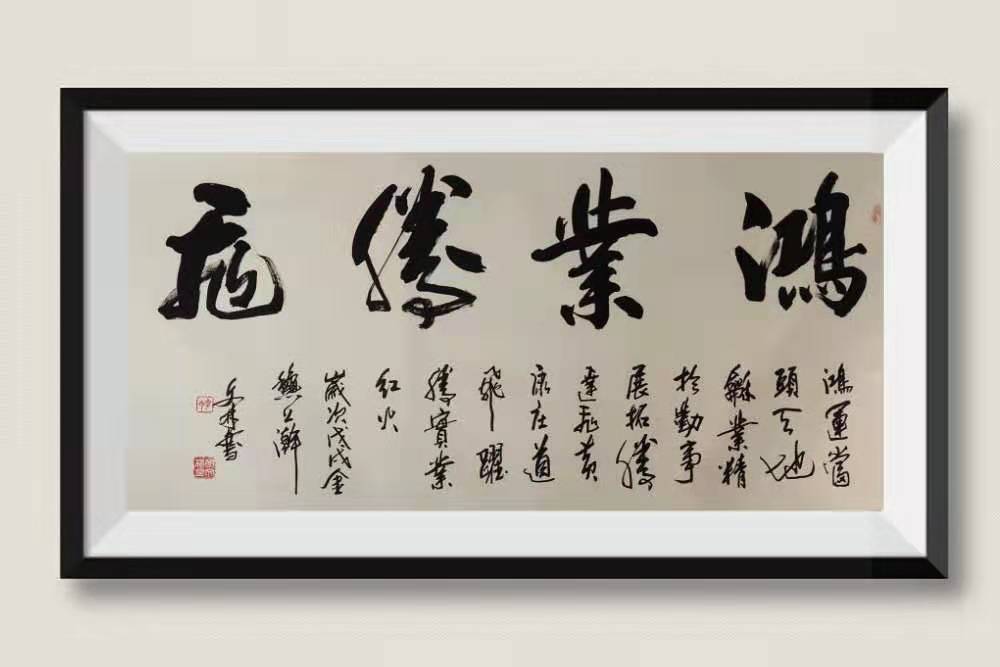 鴻業騰飛
鴻運當
頭天地
龢業精
於勤事
展拓騰
達飛黄
康庄道
飛躍
騰實業
紅火
歲次戊戌金
瀚
林書